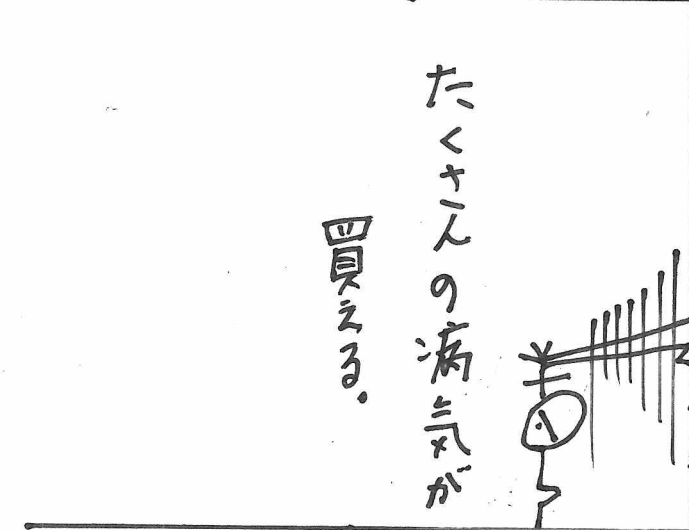 たくさんの病気が
買える。